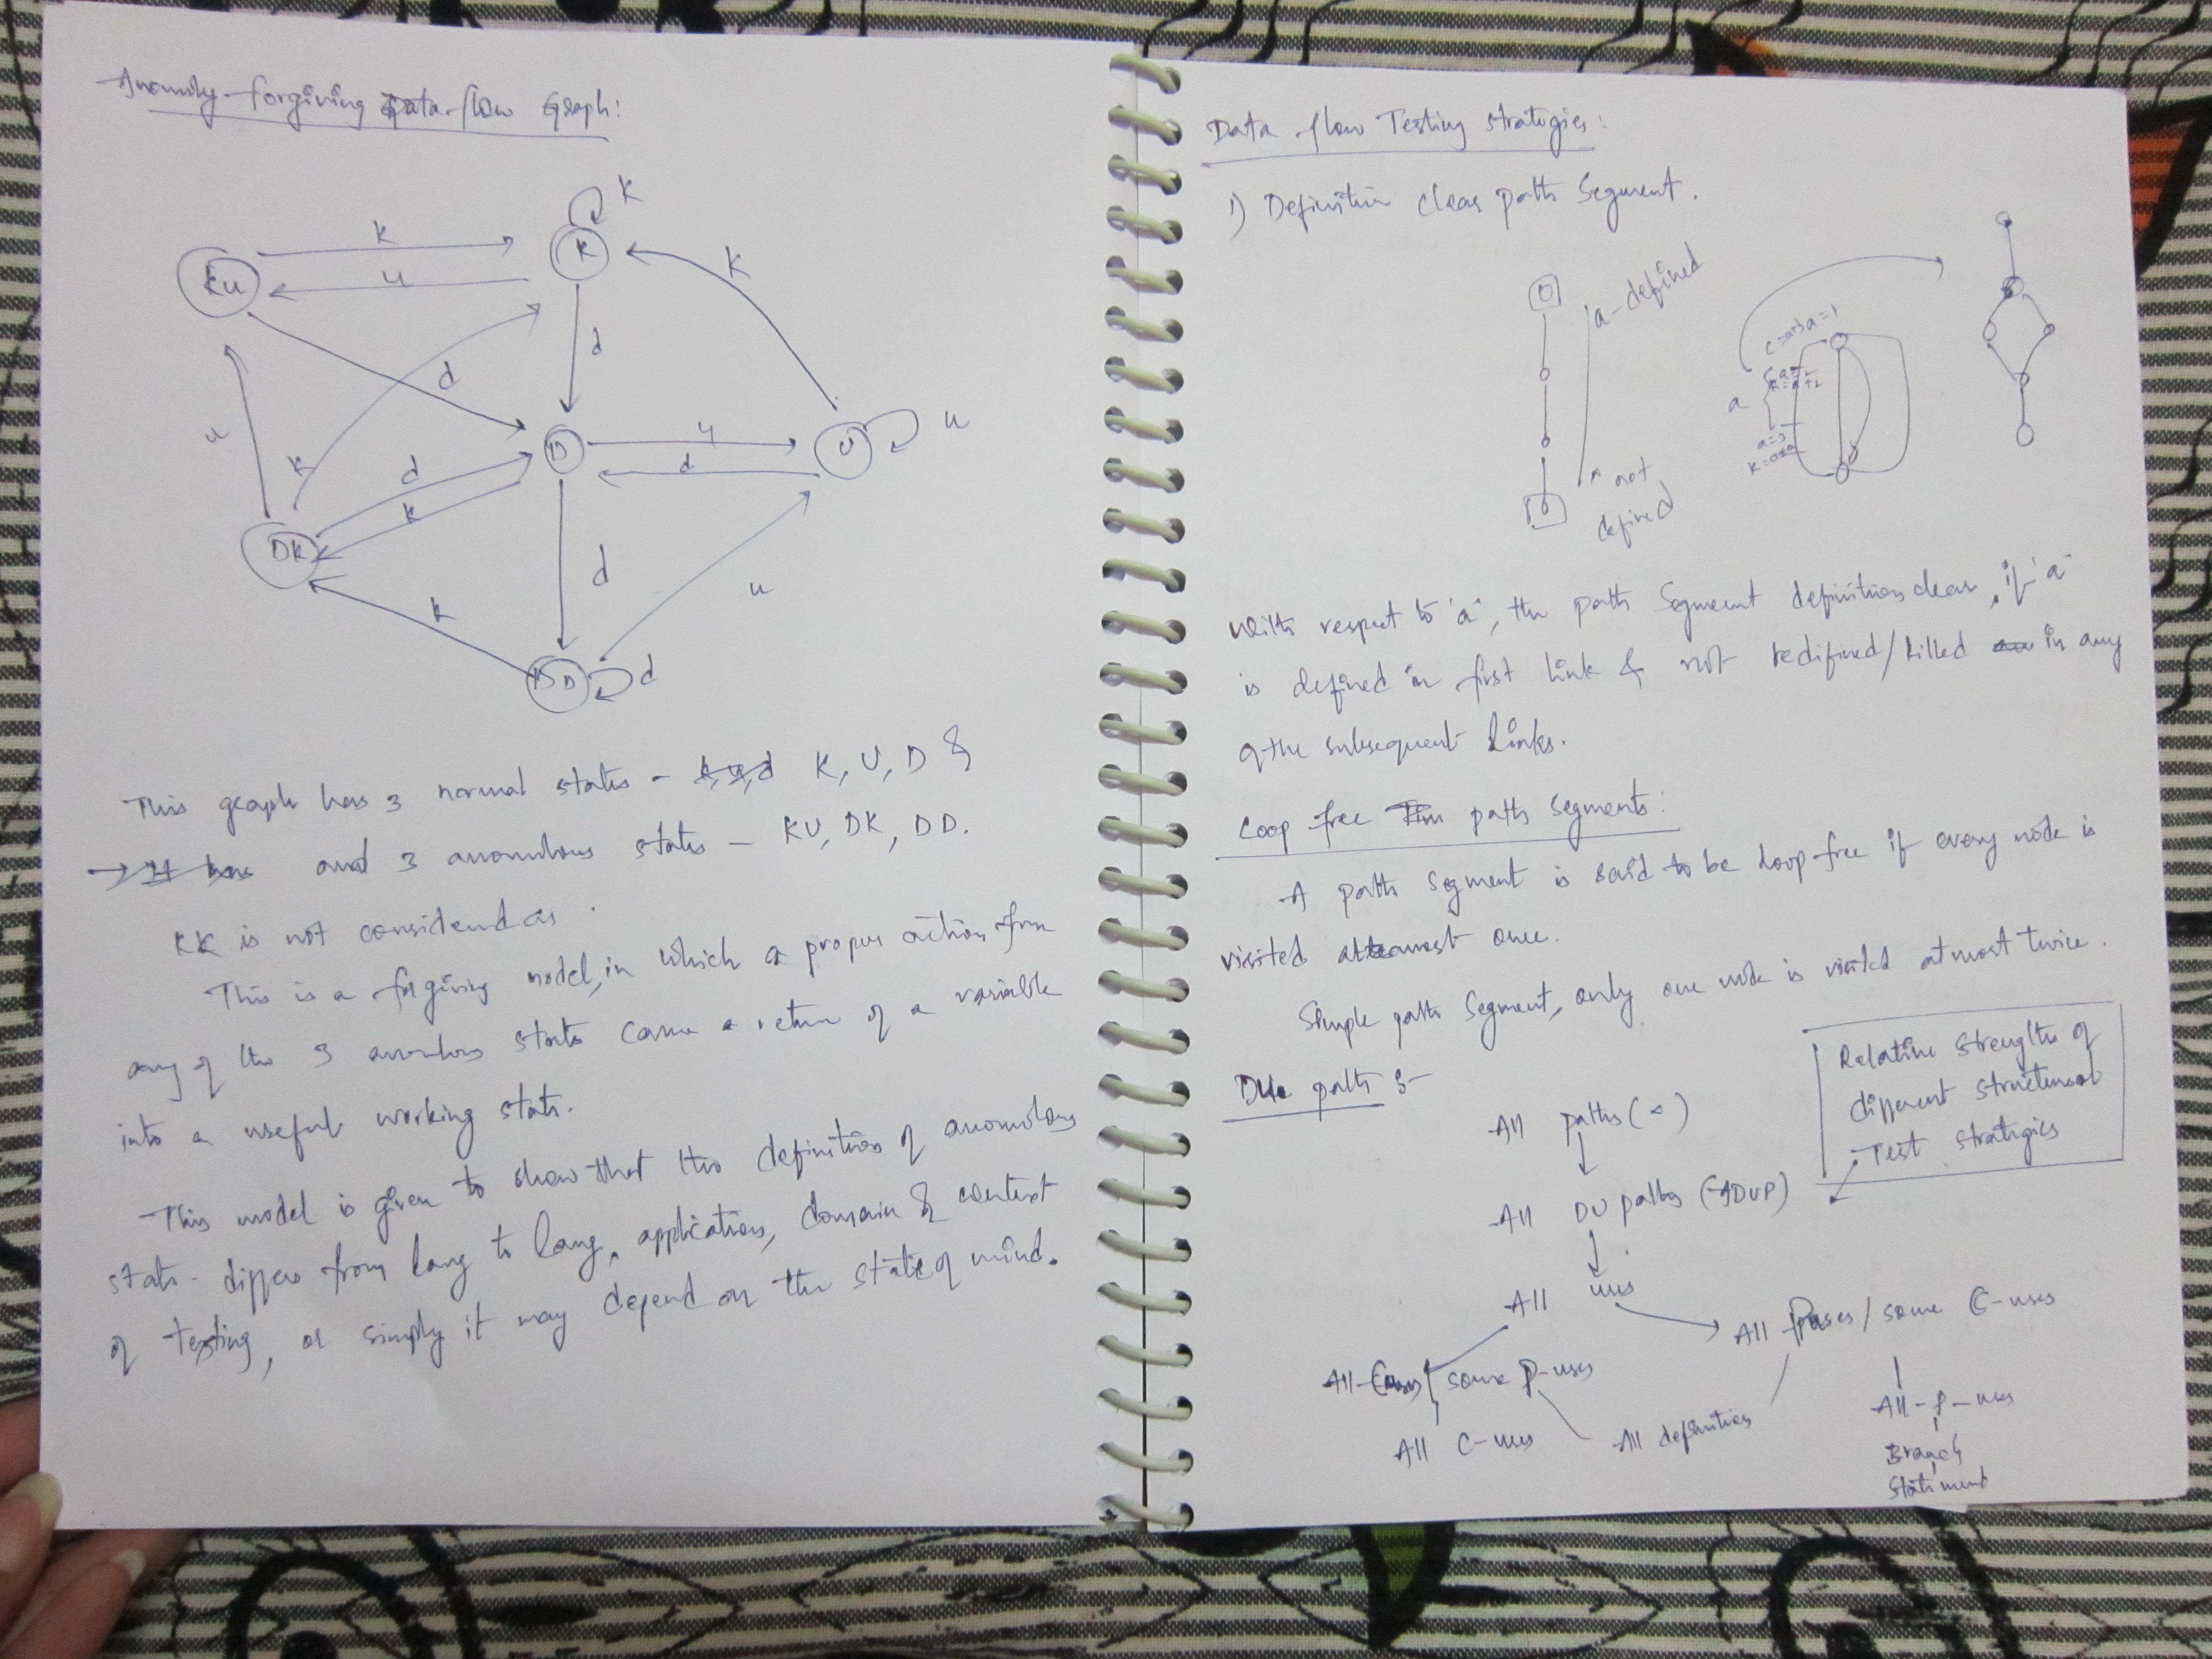 -Anomaly-forgiving Data-flow Graph:
KU
k
u
K
k
u
k
d
d
k
DK
d
k
D
u
d
U
u
k
d
DD
d
u
-This graph has 3 normal states - K, U, D &
and 3 anomulous states - KU, DK, DD.
KK is not considered as
-This is a forgiving model, in which a proper action from
any of the 3 states a return of a variable
into a useful working state.
-This model is given to show that the definition of anomulous
stat- differs from lang to lang, applications, domain & context
of testing, or simply it may depend on the state of mind.
Data-flow Testing strategies:
1) Definition clear path segment.
a-defined
not
defined
a
with respect to 'a', the path segment definition clear, if 'a'
is defined in first link & not redifined/killed in any
of the subsequent links.
Loop free path segments:
-A path segment is said to be loop-free if every node is
visited atmost once.
Simple path segment, only one node is visited atmost twice.
paths:-
Relative strengths of
different structural
Test stratigies
All paths (∞)
All DU paths (ADUP)
All uses
All some P-uses
All some C-uses
All C-uses
All definitions
All-P-uses
Branch
Statiment